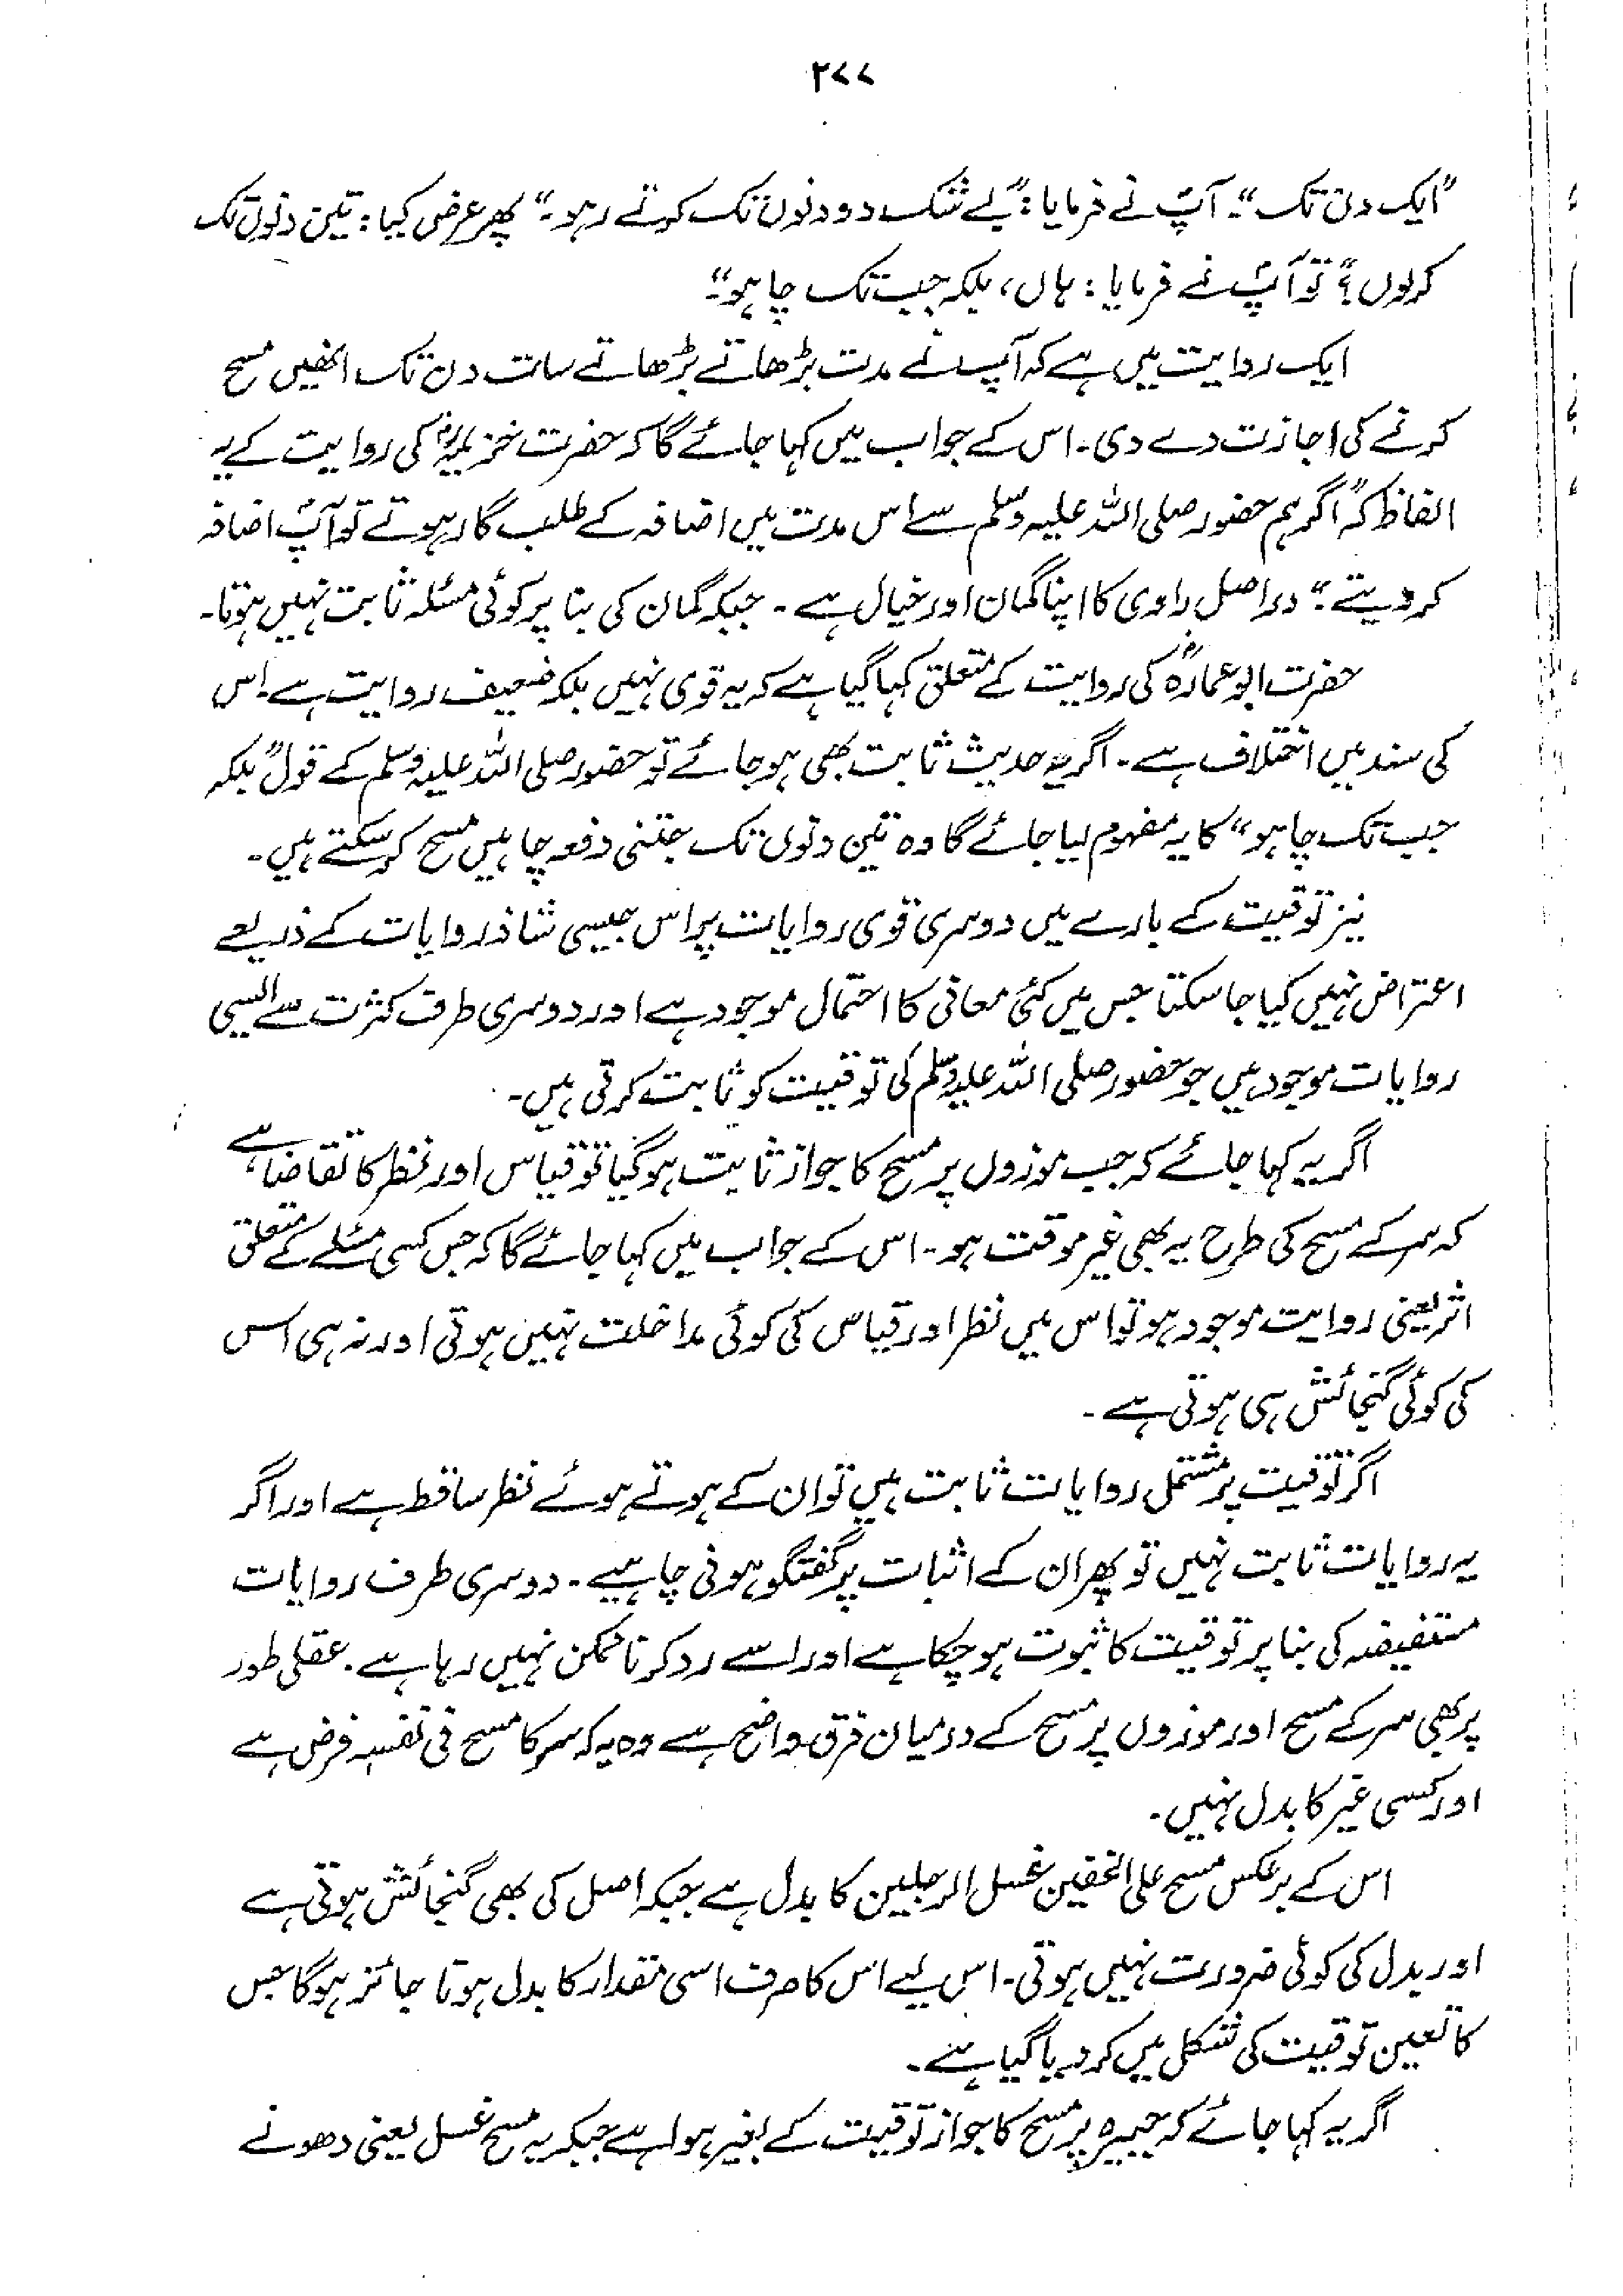 ۲۷۷
"ایک دن تک"۔ آپؐ نے فرمایا: "بے شک دو دنوں تک کرتے رہو۔" پھر عرض کیا: تین دنوں تک
کرلوں؟" تو آپؐ نے فرمایا: ہاں، بلکہ جب تک چاہو"۔
ایک روایت میں ہے کہ آپ نے مدت بڑھاتے بڑھاتے سات دن تک انھیں مسح
کرنے کی اجازت دے دی۔ اس کے جواب میں کہا جائے گا کہ حضرت خزیمہؓ کی روایت کے یہ
الفاظ کہ "اگر ہم حضور صلی اللہ علیہ وسلم سے اس مدت میں اضافہ کے طلب گار ہوتے تو آپؐ اضافہ
کر دیتے" دراصل راوی کا اپنا گمان اور خیال ہے۔ جبکہ گمان کی بنا پر کوئی مسئلہ ثابت نہیں ہوتا۔
حضرت ابو عمارہؓ کی روایت کے متعلق کہا گیا ہے کہ یہ قوی نہیں بلکہ ضعیف روایت ہے۔ اس
کی سند میں اختلاف ہے۔ اگر یہ حدیث ثابت بھی ہو جائے تو حضور صلی اللہ علیہ وسلم کے قول "بلکہ
جب تک چاہو" کا یہ مفہوم لیا جائے گا وہ تین دنوں تک جتنی دفعہ چاہیں مسح کر سکتے ہیں۔
نیز توقیت کے بارے میں دوسری قوی روایات پر اس جیسی شاذ روایات کے ذریعے
اعتراض نہیں کیا جا سکتا جس میں کئی معانی کا احتمال موجود ہے اور دوسری طرف کثرت سے ایسی
روایات موجود ہیں جو حضور صلی اللہ علیہ وسلم کی توقیت کو ثابت کرتی ہیں۔
اگر یہ کہا جائے کہ جب موزوں پر مسح کا جواز ثابت ہو گیا تو قیاس اور نظر کا تقاضا ہے
کہ سر کے مسح کی طرح یہ بھی غیر موقت ہو۔ اس کے جواب میں کہا جائے گا کہ جس کسی مسئلے کے متعلق
اثر یعنی روایت موجود ہو تو اس میں نظر اور قیاس کی کوئی مداخلت نہیں ہوتی اور نہ ہی اس
کی کوئی گنجائش ہی ہوتی ہے۔
اگر توقیت پر مشتمل روایات ثابت ہیں تو ان کے ہوتے ہوئے نظر ساقط ہے اور اگر
یہ روایات ثابت نہیں تو پھر ان کے اثبات پر گفتگو ہونی چاہیے۔ دوسری طرف روایات
مستفیضہ کی بنا پر توقیت کا ثبوت ہو چکا ہے اور اسے رد کرنا ممکن نہیں رہا ہے۔ عقلی طور
پر بھی سر کے مسح اور موزوں پر مسح کے درمیان فرق واضح ہے وہ یہ کہ سر کا مسح فی نفسہ فرض ہے
اور کسی غیر کا بدل نہیں۔
اس کے برعکس مسح علی الخفین غسل الرجلین کا بدل ہے جبکہ اصل کی بھی گنجائش ہوتی ہے
اور بدل کی کوئی ضرورت نہیں ہوتی۔ اس لیے اس کا صرف اسی مقدار کا بدل ہونا جائز ہوگا جس
کا تعین توقیت کی شکل میں کر دیا گیا ہے۔
اگر یہ کہا جائے کہ جبیرہ پر مسح کا جواز توقیت کے بغیر ہوا ہے جبکہ یہ مسح غسل یعنی دھونے